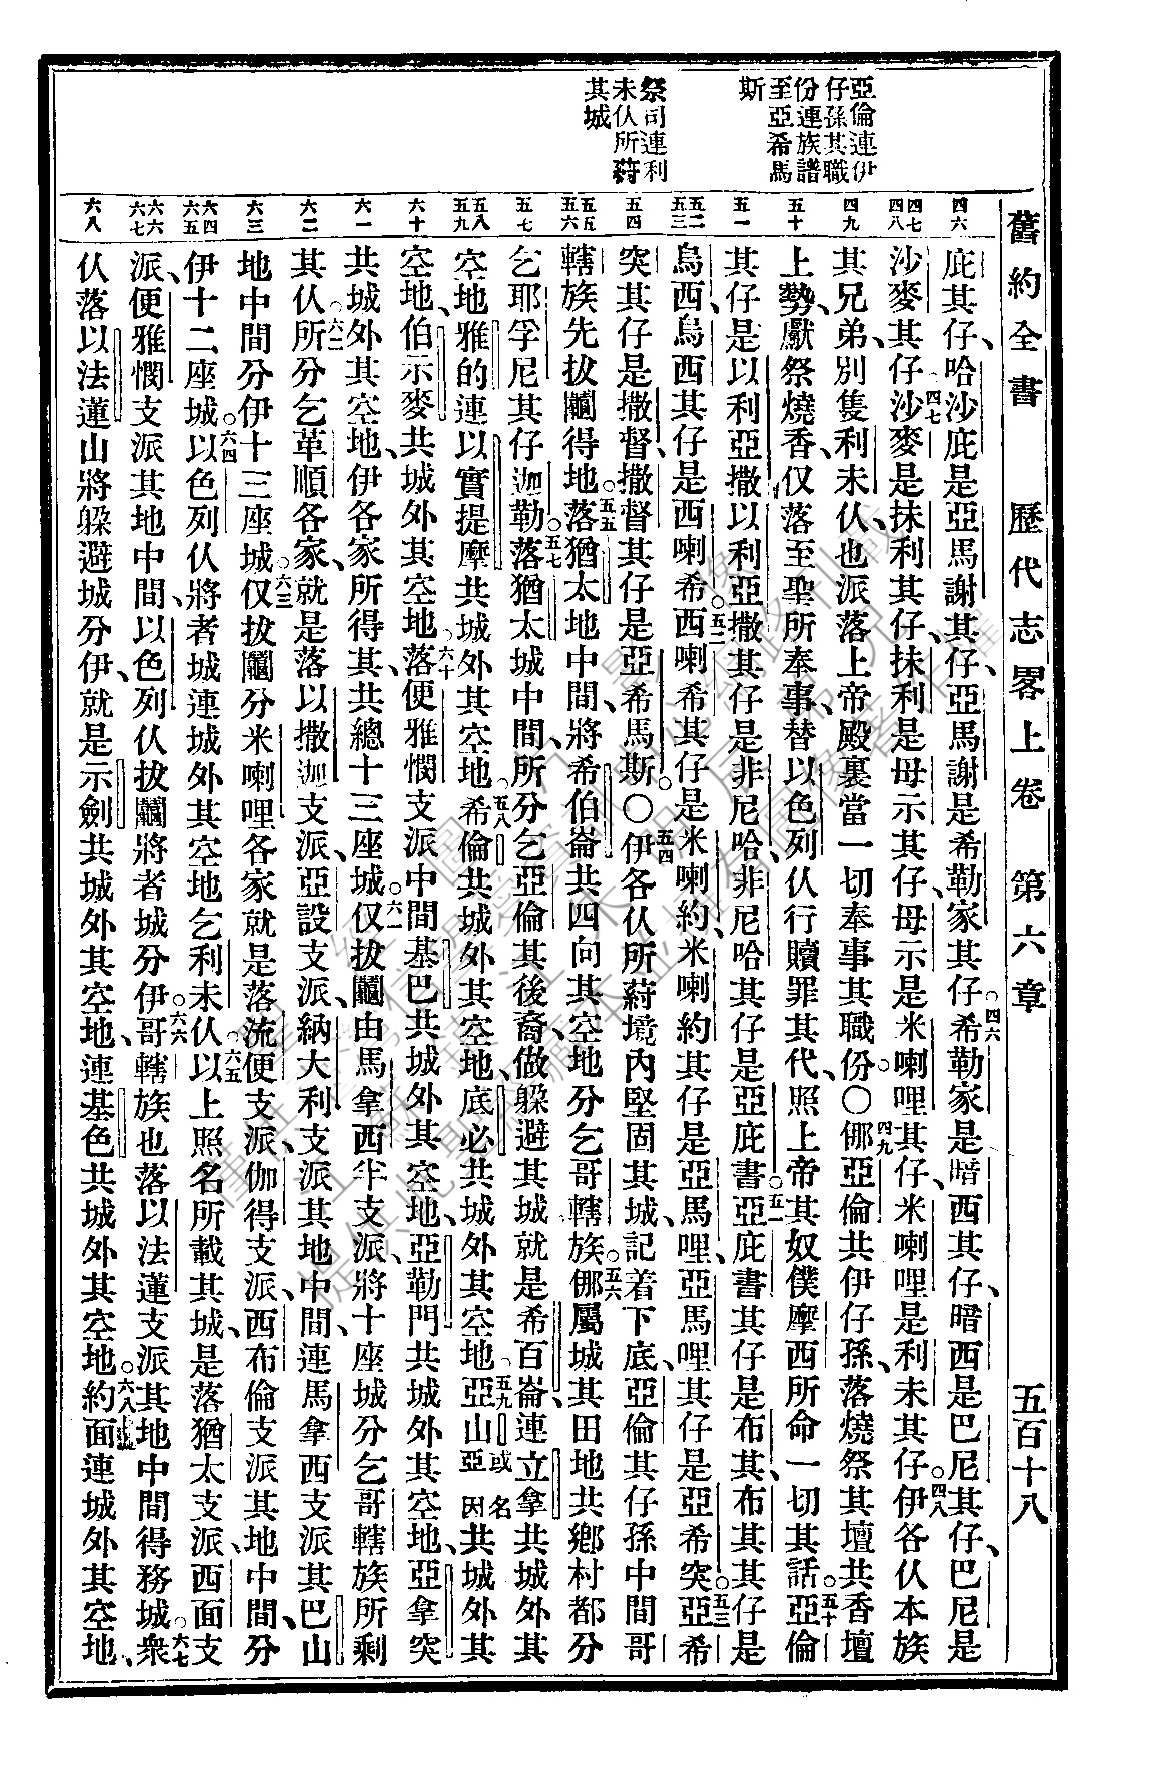 舊約全書 歷代志畧上卷 第六章 五百十八
亞倫連伊
仔孫其職
份連族譜
至亞希馬
斯
祭司連利
未仈所蒔
其城
四六
四七
四八
四九
五十
五一
五二
五三
五四
五五
五六
五七
五八
五九
六十
六一
六二
六三
六四
六五
六六
六七
六八
庇其仔、哈沙庇是亞馬謝其仔、亞馬謝是希勒家其仔。四六希勒家是暗西其仔、暗西是巴尼其仔、巴尼是
沙麥其仔、四七沙麥是抹利其仔、抹利是母示其仔、母示是米喇哩其仔、米喇哩是利未其仔。四八伊各仈本族
其兄弟、別隻利未仈也派落上帝殿裏當一切奉事其職份。〇四九倻亞倫共伊仔孫、落燒祭其壇共香壇
上勢、獻祭燒香、仅落至聖所奉事、替以色列仈行贖罪其代、照上帝其奴僕摩西所命一切其話。五十亞倫
其仔是以利亞撒、以利亞撒其仔是非尼哈、非尼哈其仔是亞庇書。五一亞庇書其仔是布其、布其其仔是
烏西、烏西其仔是西喇希、五二西喇希其仔是米喇約、米喇約其仔是亞馬哩、亞馬哩其仔是亞希突。五三亞希
突其仔是撒督、撒督其仔是亞希馬斯。〇五四伊各仈所蒔境內堅固其城、記着下底、亞倫其仔孫中間哥
轄族先拔鬮得地。五五落猶太地中間、將希伯崙共四向其空地分乞哥轄族。五六倻屬城其田地共鄉村都分
乞耶孚尼其仔迦勒。五七落猶太城中間、所分乞亞倫其後裔、做躱避其城就是希百崙、連立拿共城外其
空地、雅的連以實提摩共城外其空地、五八希倫共城外其空地、底必共城外其空地、五九亞山或名亞因共城外其
空地、伯示麥共城外其空地、六十落便雅憫支派中間基巴共城外其空地、亞勒門共城外其空地、亞拿突
共城外其空地、伊各家所得其、共總十三座城。六一仅拔鬮由馬拿西半支派、將十座城分乞哥轄族所剩
其仈。六二所分乞革順各家、就是落以撒迦支派、亞設支派、納大利支派其地中間、連馬拿西支派其巴山
地中間分伊十三座城。六三仅拔鬮分米喇哩各家就是落流便支派、伽得支派、西布倫支派其地中間、分
伊十二座城。六四以色列仈將者城連城外其空地乞利未仈。六五以上照名所載其城、是落猶太支派、西面支
派、便雅憫支派其地中間、以色列仈拔鬮將者城分伊。六六哥轄族也落以法蓮支派其地中間得務城衆。六七
仈落以法蓮山將躱避城分伊、就是示劍共城外其空地、連基色共城外其空地。六八約面連城外其空地、